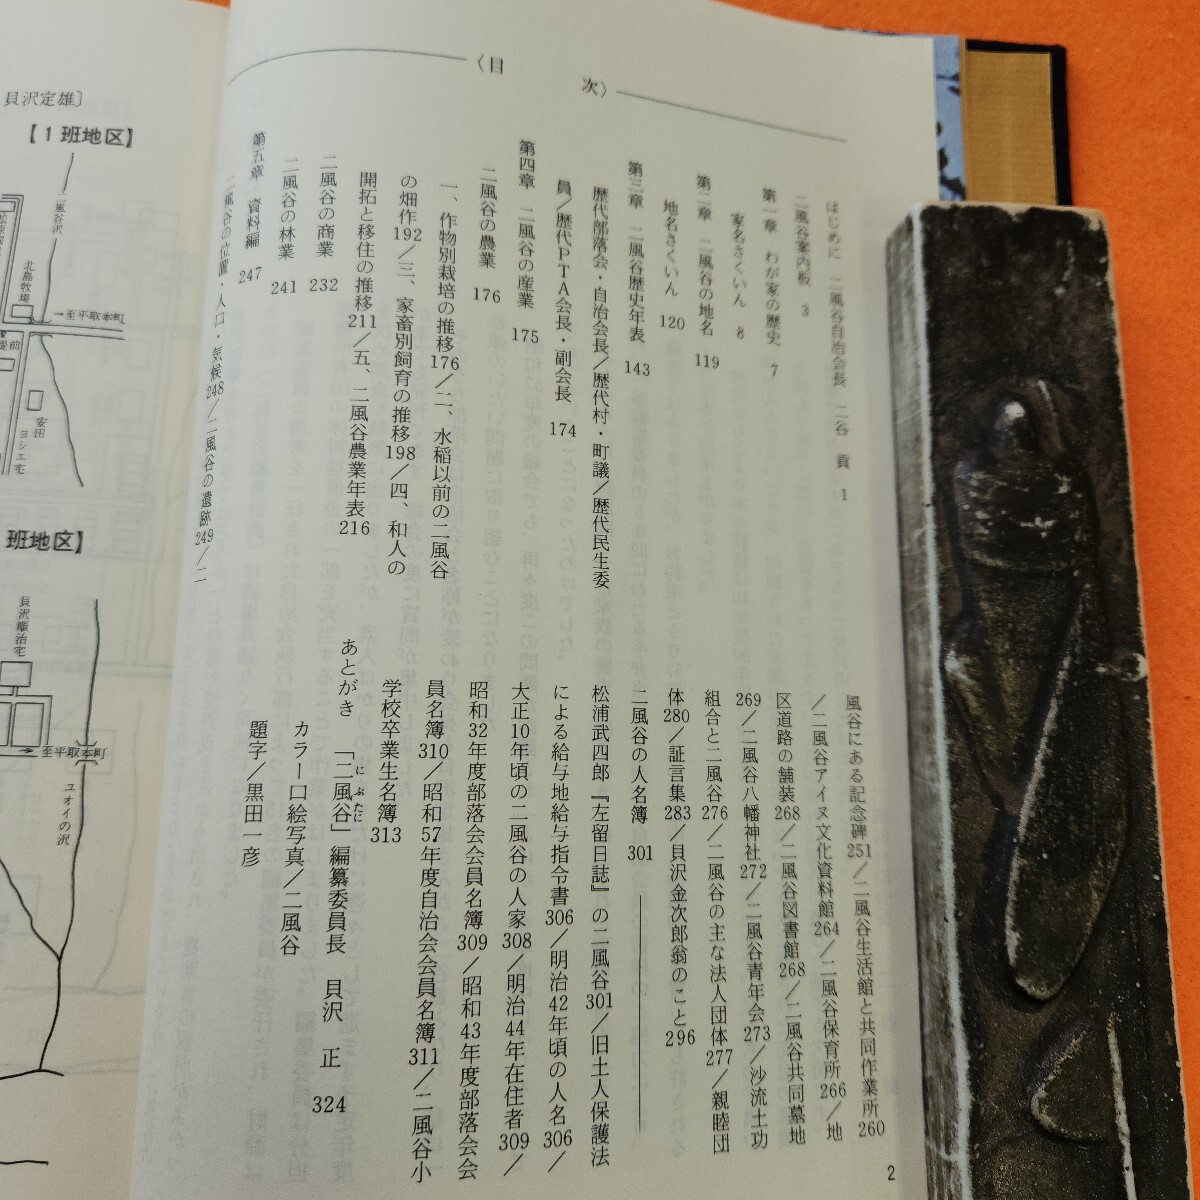 〈目 次〉
はじめに 二風谷自治会長 二谷 貢 1
二風谷案内板 3
第一章 わが家の歴史 7
家名さくいん 8
第二章 二風谷の地名 119
地名さくいん 120
第三章 二風谷歴史年表 143
歴代部落会・自治会長/歴代村・町議/歴代民生委
員/歴代PTA会長・副会長 174
第四章 二風谷の産業 175
二風谷の農業 176
一、作物別栽培の推移176/二、水稲以前の二風谷
の畑作192/三、家畜別飼育の推移198/四、和人の
開拓と移住の推移211/五、二風谷農業年表216
二風谷の商業 232
二風谷の林業 241
第五章 資料編 247
二風谷の位置・人口・気候248/二風谷の遺跡249/二
風谷にある記念碑251/二風谷生活館と共同作業所260
/二風谷アイヌ文化資料館264/二風谷保育所266/地
区道路の舗装268/二風谷図書館268/二風谷共同墓地
269/二風谷八幡神社272/二風谷青年会273/沙流土功
組合と二風谷276/二風谷の主な法人団体277/親睦団
体280/証言集283/貝沢金次郎翁のこと296
二風谷の人名簿 301
松浦武四郎『左留日誌』の二風谷301/旧土人保護法
による給与地給与指令書306/明治42年頃の人名306/
大正10年頃の二風谷の人家308/明治44年在住者309/
昭和32年度部落会会員名簿309/昭和43年度部落会会
員名簿310/昭和57年度自治会会員名簿311/二風谷小
学校卒業生名簿313
あとがき 「二風谷」編纂委員長 貝沢 正 324
にぶたに
カラー口絵写真/二風谷
題字/黒田一彦
2
貝沢定雄〕
【1班地区】
二風谷沢
北島牧場
→至平取本町
安田
ヨシエ宅
班地区】
貝沢順治宅
→至平取本町
ユオイの沢